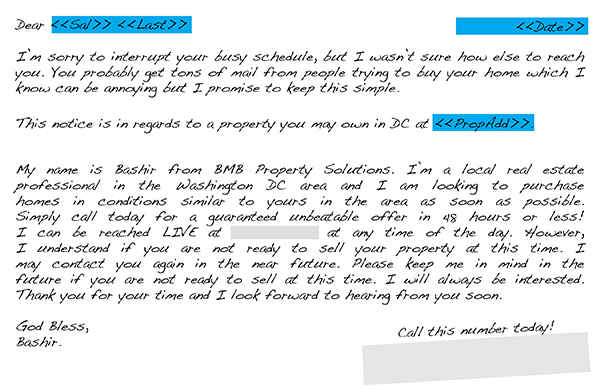 Dear <<Sal>> <<Last>> <<Date>>
I'm sorry to interrupt your busy schedule, but I wasn't sure how else to reach
you. You probably get tons of mail from people trying to buy your home which I
know can be annoying but I promise to keep this simple.
This notice is in regards to a property you may own in DC at <<PropAdd>>.
My name is Bashir from BMB Property Solutions. I'm a local real estate
professional in the Washington DC area and I am looking to purchase
homes in conditions similar to yours in the area as soon as possible.
Simply call today for a guaranteed unbeatable offer in 48 hours or less!
I can be reached LIVE at at any time of the day. However,
I understand if you are not ready to sell your property at this time. I
may contact you again in the near future. Please keep me in mind in the
future if you are not ready to sell at this time. I will always be interested.
Thank you for your time and I look forward to hearing from you soon.
God Bless,
Bashir.
Call this number today!